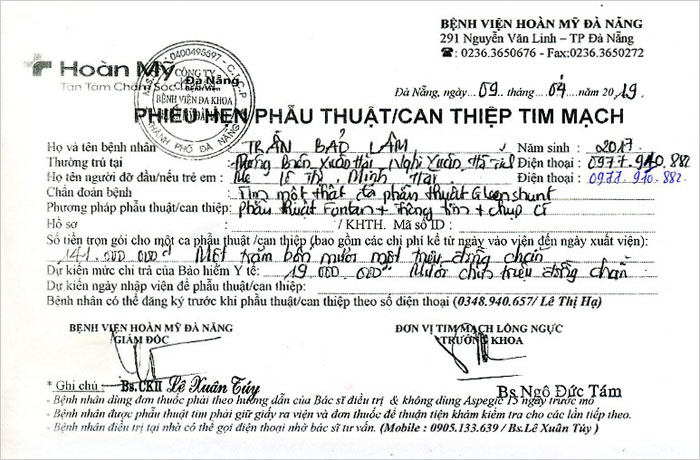 BỆNH VIỆN HOÀN MỸ ĐÀ NẴNG
291 Nguyễn Văn Linh – TP Đà Nẵng
☎: 0236.3650676 - Fax:0236.3650272
Hoàn Mỹ
Đà Nẵng
Tận Tâm Chăm Sóc
M.S. 0400495597 - C.T.C.P
CÔNG TY
BỆNH VIỆN ĐA KHOA
THÀNH PHỐ ĐÀ NẴNG
Đà Nẵng, ngày 09 tháng 04 năm 2019
PHIẾU HẸN PHẪU THUẬT/CAN THIỆP TIM MẠCH
Họ và tên bệnh nhân : TRẦN BẢO LÂM Năm sinh : 2017
Thường trú tại : Xuân Hải, Nghi Xuân, Hà Tĩnh Điện thoại : 0977.910.882
Họ tên người đỡ đầu/nếu trẻ em : Mẹ Lê Thị Minh Điện thoại : 0977.910.882
Chẩn đoán bệnh : Tim một thất đã phẫn thuật Gleenshunt
Phương pháp phẫu thuật/can thiệp: Phẫu thuật Fontan + Thông tim + chụp CT
Hồ sơ : / KHTH. Mã số ID :
Số tiền trọn gói cho một ca phẫu thuật /can thiệp (bao gồm các chi phí kể từ ngày vào viện đến ngày xuất viện):
141.000.000đ Một trăm bốn mươi một triệu đồng chẵn
Dự kiến mức chi trả của Bảo hiểm Y tế: 19.000.000đ Mười chín triệu đồng chẵn
Dự kiến ngày nhập viện để phẫu thuật/can thiệp:
Bệnh nhân có thể đăng ký trước khi phẫu thuật/can thiệp theo số điện thoại (0348.940.657/ Lê Thị Hạ)
BỆNH VIỆN HOÀN MỸ ĐÀ NẴNG
GIÁM ĐỐC
ĐƠN VỊ TIM MẠCH LỒNG NGỰC
TRƯỞNG KHOA
* Ghi chú :
Bs.CKII Lê Xuân Túy
Bs Ngô Đức Tám
- Bệnh nhân dùng đơn thuốc phải theo hướng dẫn của Bác sĩ điều trị & không dùng Aspegic 15 ngày trước mổ
- Bệnh nhân được phẫu thuật tim phải giữ giấy ra viện và đơn thuốc để thuận tiện khám kiểm tra cho các lần tiếp theo.
- Bệnh nhân điều trị tại nhà có thể gọi điện thoại nhờ bác sĩ tư vấn. (Mobile : 0905.133.639 / Bs.Lê Xuân Túy )